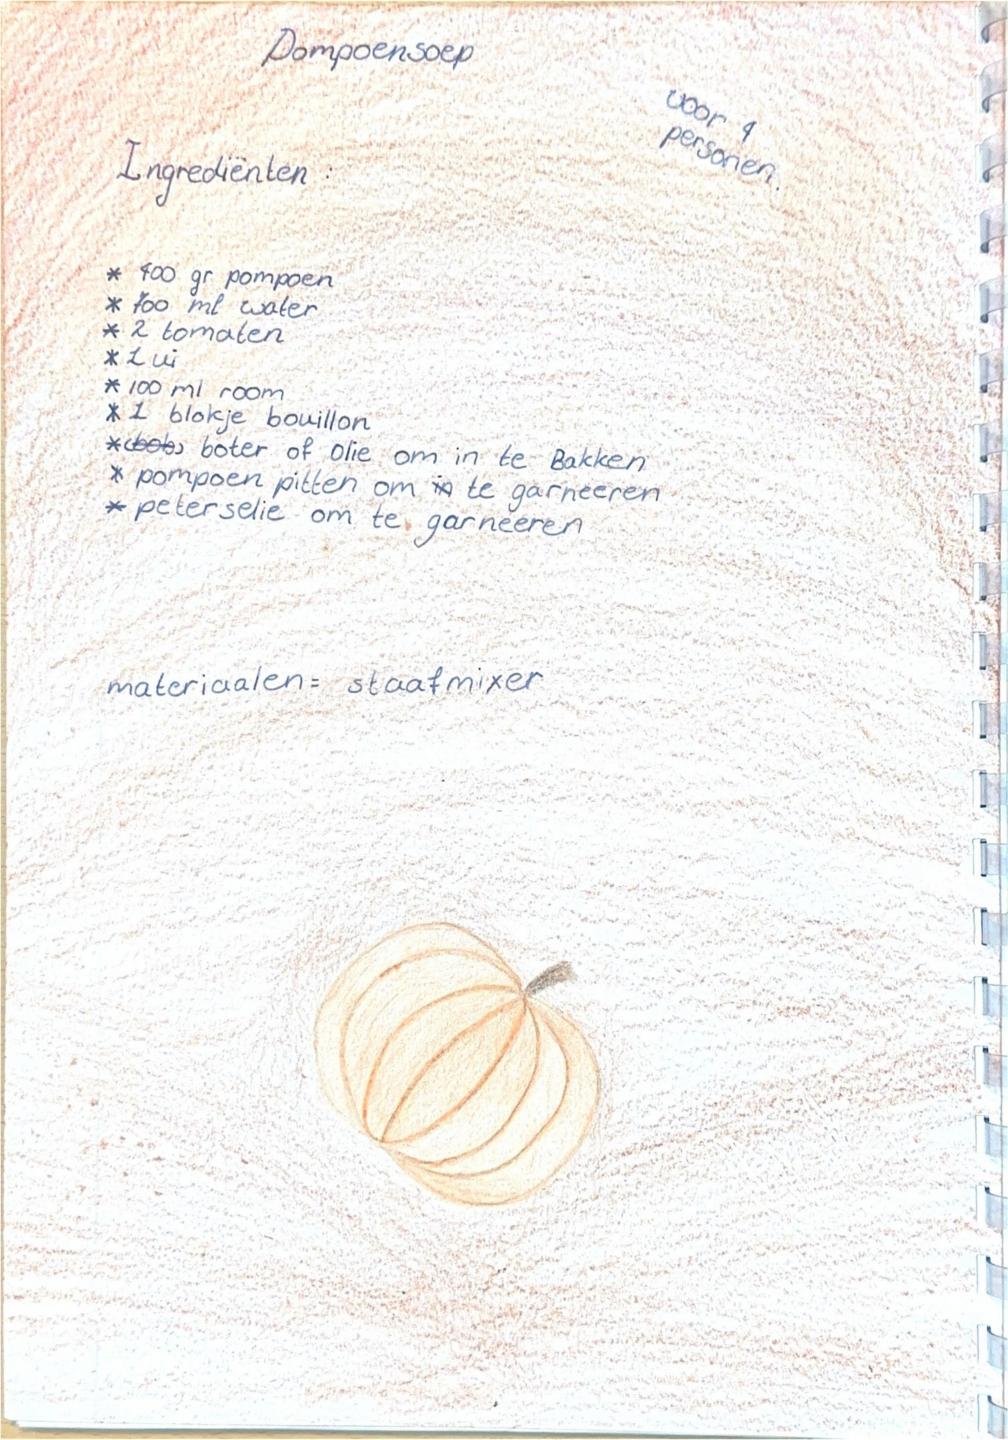 Pompoensoep
voor 4
personen.
Ingrediënten :
* 400 gr pompoen
* ml water
* 2 tomaten
* 1 ui
* 100 ml room
* 1 blokje bouillon
* boter of olie om in te Bakken
* pompoen pitten om te garneeren
* peterselie om te garneeren
materiaalen = staafmixer